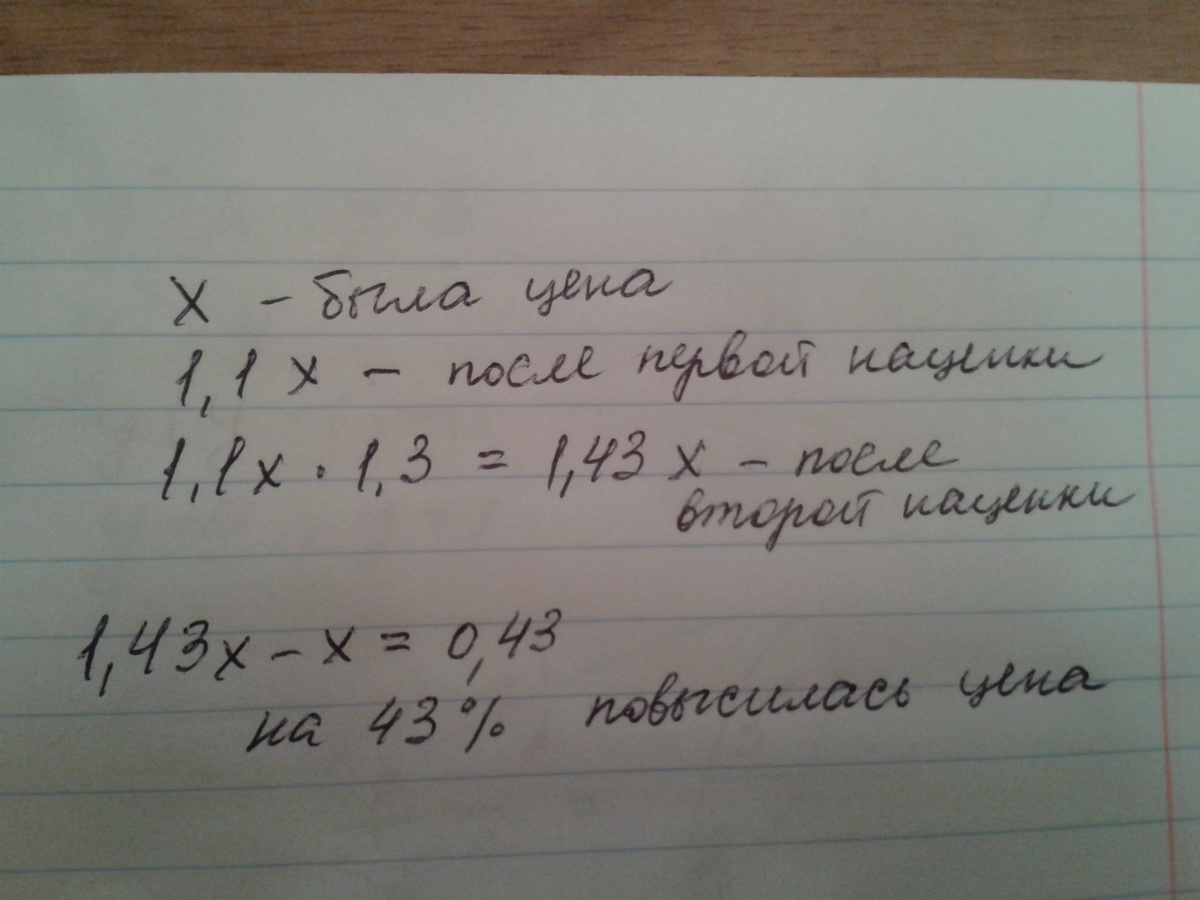 х - была цена
1,1 х - после первой наценки
1,1х · 1,3 = 1,43 х - после
второй наценки
1,43х - х = 0,43
на 43% повысилась цена